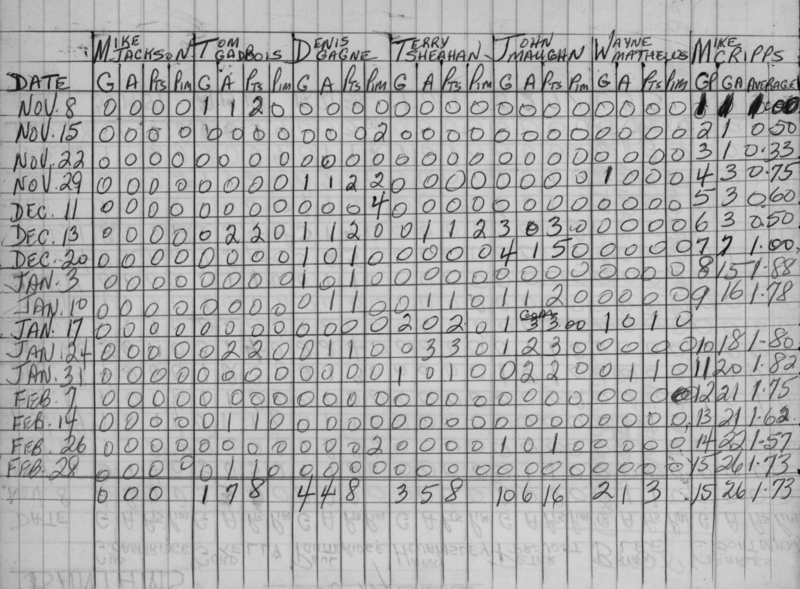 MIKE JACKSON TOM GADBOIS DENIS GAGNE TERRY SHEAHAN JOHN MAUGHN WAYNE MATHEWS MIKE CRIPPS
DATE G A PTS PIM G A PTS PIM G A PTS PIM G A PTS PIM G A PTS PIM G A PTS PIM GP GA AVERAGE
NOV. 8 0 0 0 0 1 1 2 0 0 0 0 0 0 0 0 0 0 0 0 0 0 0 0 0 1 1 1.00
NOV. 15 0 0 0 0 0 0 0 0 0 0 0 2 0 0 0 0 0 0 0 0 0 0 0 0 2 1 0.50
NOV. 22 0 0 0 0 0 0 0 0 0 0 0 0 0 0 0 0 0 0 0 0 0 0 0 0 3 1 0.33
NOV. 29 0 0 0 0 0 0 0 0 1 1 2 2 0 0 0 0 0 0 0 0 1 0 0 0 4 3 0.75
DEC. 11 0 0 0 0 0 0 0 0 0 0 0 4 0 0 0 0 0 0 0 0 0 0 0 0 5 3 0.60
DEC. 13 0 0 0 0 0 2 2 0 1 1 2 0 0 1 1 2 3 0 3 0 0 0 0 0 6 3 0.50
DEC. 20 0 0 0 0 0 0 0 0 1 0 1 0 0 0 0 0 4 1 5 0 0 0 0 0 7 7 1.00
JAN. 3 0 0 0 0 0 0 0 0 1 0 1 0 0 0 0 0 0 0 0 0 0 0 0 0 8 15 1.88
JAN. 10 0 0 0 0 0 0 0 0 0 1 1 0 0 1 1 0 1 1 2 0 0 0 0 0 9 16 1.78
JAN. 17 0 0 0 0 0 0 0 0 0 0 0 0 2 0 2 0 1 3 3.00 1 0 1 0
JAN. 24 0 0 0 0 0 2 2 0 0 1 1 0 0 3 3 0 1 2 3 0 0 0 0 0 10 18 1.80
JAN. 31 0 0 0 0 0 0 0 0 0 0 0 0 1 0 1 0 0 2 2 0 0 1 1 0 11 20 1.82
FEB. 7 0 0 0 0 0 0 0 0 0 0 0 0 0 0 0 0 0 0 0 0 0 0 0 0 12 21 1.75
FEB. 14 0 0 0 0 0 1 1 0 0 0 0 0 0 0 0 0 0 0 0 0 0 0 0 0 13 21 1.62
FEB. 26 0 0 0 0 0 0 0 0 0 0 0 2 0 0 0 0 1 0 1 0 0 0 0 0 14 22 1.57
FEB. 28 0 0 0 0 0 1 1 0 0 0 0 0 0 0 0 0 0 0 0 0 0 0 0 0 15 26 1.73
0 0 0 1 7 8 4 4 8 3 5 8 10 6 16 2 1 3 15 26 1.73